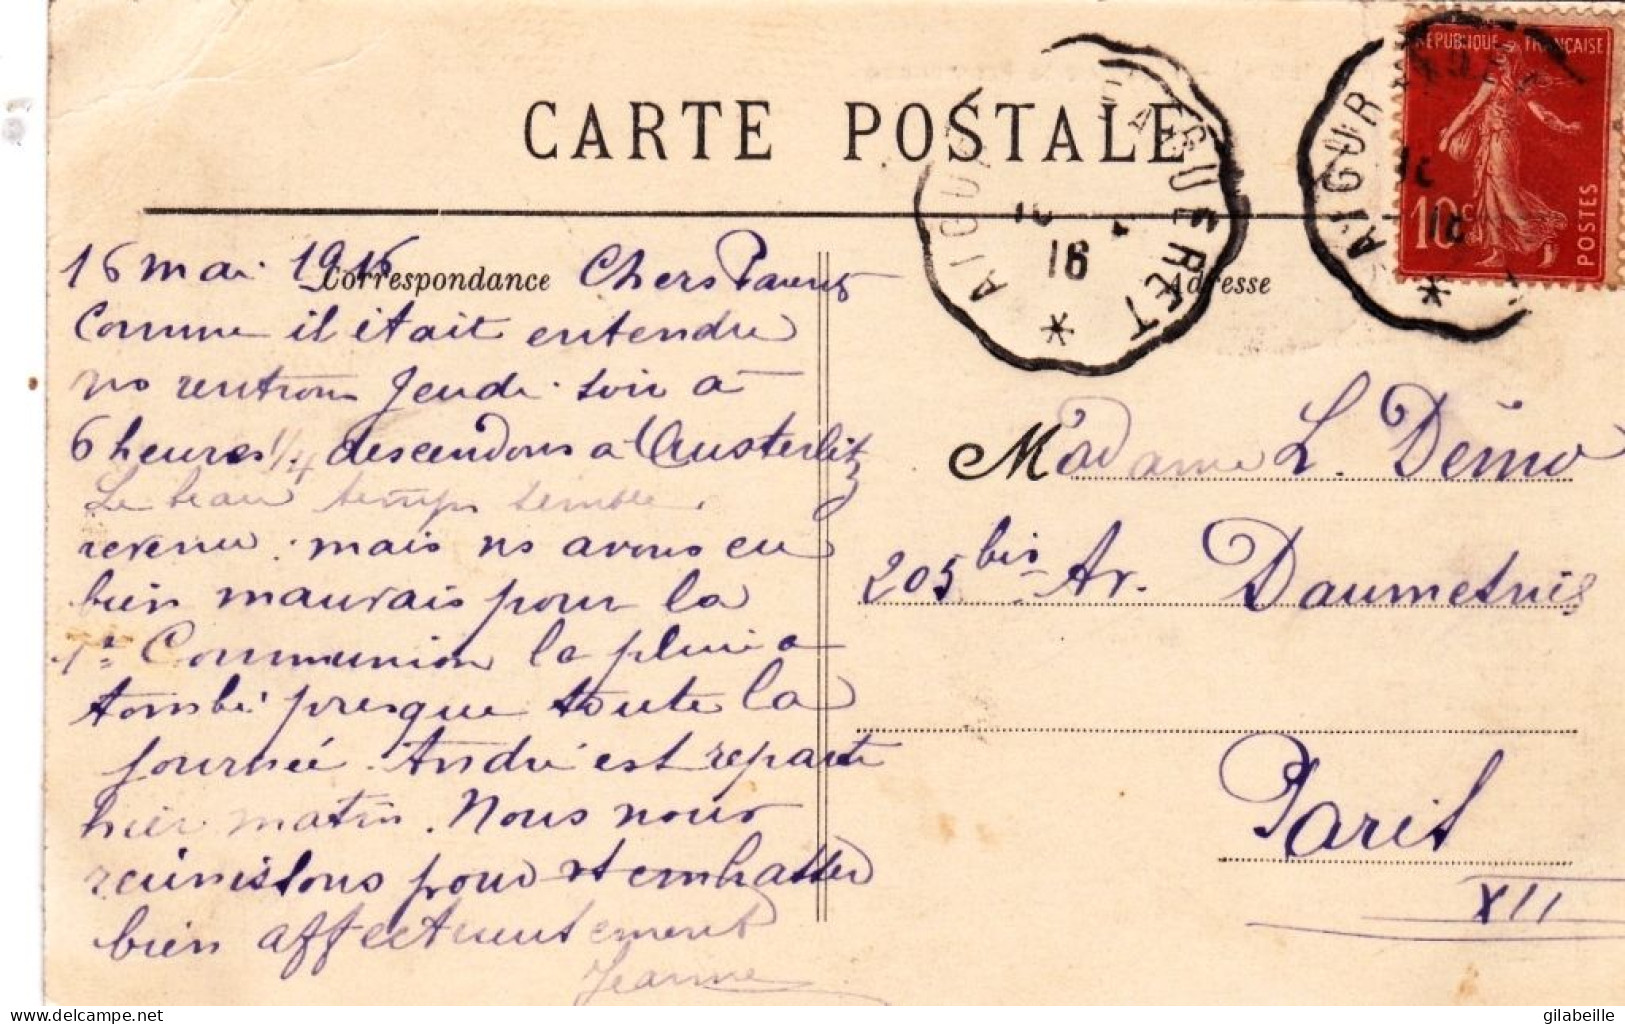 CARTE POSTALE
Correspondance
Adresse
RÉPUBLIQUE FRANÇAISE
10c
POSTES
AIGUR
GUERET
16
AIGUR
16 mai 1916 Chers Parents
Comme il était entendu
ns rentrons Jeudi soir à
6 heures 1/4 descendons a Austerlitz
Le beau temps semble
revenu. mais ns avons eu
bien mauvais pour la
1re Communion la pluie a
tombé presque toute la
journée. André est reparti
hier matin. Nous nous
réunissons pour vs embrasser
bien affectueusement
Jeanne
Madame L. Démo
205 bis Av. Daumesnil
Paris
XII
delcampe.net
gilabeille